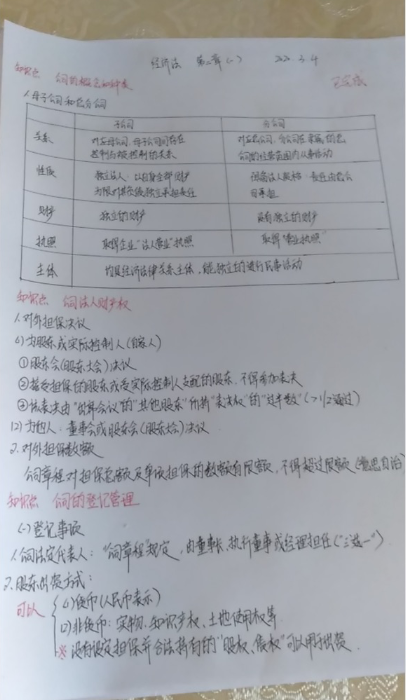 经济法 第二章(一) 2022.3.4
知识点 公司的概念和种类
1.母子公司和总分公司
子公司 分公司
关系 对应母公司,母子公司间存在控制与被控制的关系 对应总公司,分公司在总公司的业务范围内从事活动
性质 独立法人,以自身全部财产为限对其经营独立承担责任
财产 独立的财产 没有独立的财产
执照 取得企业“法人营业”执照 取得“营业执照”
主体 均具经济法律关系主体,能独立的进行民事活动
知识点 公司法人财产权
1.对外担保决议
(1)为股东或实际控制人(自家人)
①股东会(股东大会)决议
②接受担保的股东或受实际控制人支配的股东,不得参加表决
③该表决由“出席会议的”“其他股东”所持“表决权”的“过半数”(>1/2通过)
(2)为他人:董事会或股东会(股东大会)决议
2.对外担保数额
公司章程对担保总额及单项担保的数额有限额,不得超过限额(意思自治)
知识点 公司的登记管理
(一)登记事项
1.公司法定代表人:“公司章程”规定,由董事长、执行董事或经理担任(“三选一”)
2.股东出资方式:
可以
(1)货币(人民币表示)
(2)非货币:实物、知识产权、土地使用权等
※没有设定担保并合法持有的“股权、债权”可以用于出资